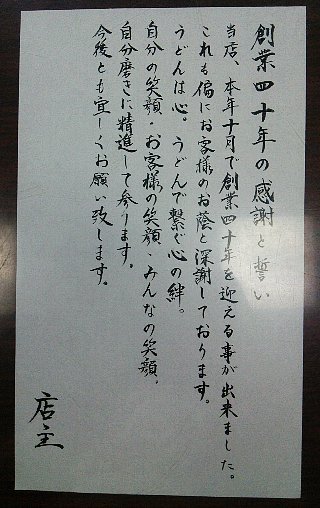 創業四十年の感謝と誓い
当店、本年十月で創業四十年を迎える事が出来ました。
これも偏にお客様のお蔭と深謝しております。
うどんは心。うどんで繋ぐ心の絆。
自分の笑顔・お客様の笑顔・みんなの笑顔。
自分磨きに精進して参ります。
今後とも宜しくお願い致します。
店主